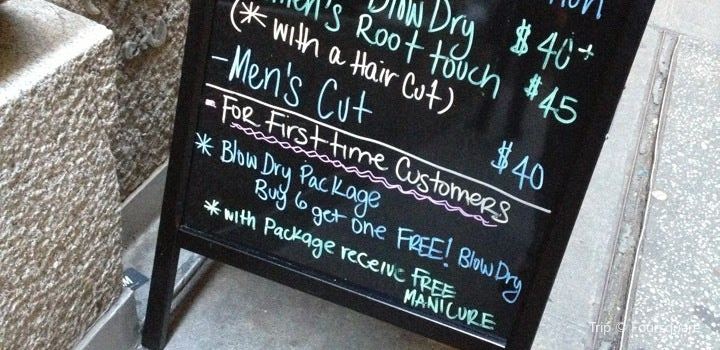 Blow Dry $40+
Root touch $45
(* with a Hair Cut)
- Men's Cut $40
- FOR First time Customers
* Blow Dry Package
Buy 6 get one FREE! Blow Dry
* with Package receive FREE
MANICURE
Trip @ Foursquare